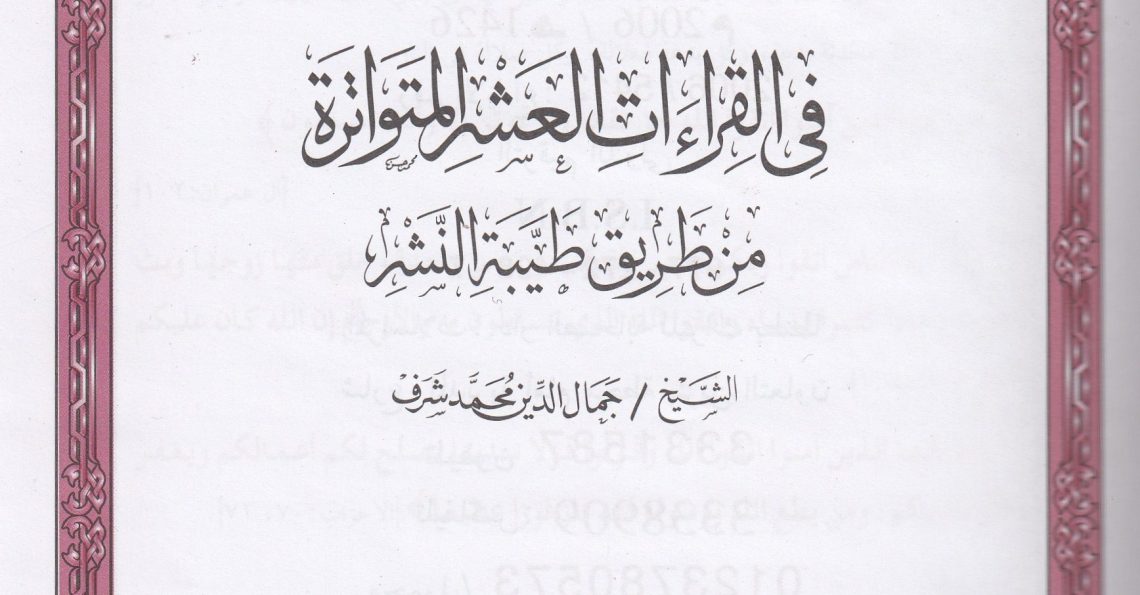 فِي القِرَاءَاتِ العَشْرِ المُتَوَاتِرَةِ
مِنْ طَرِيقِ طَيِّبَةِ النَّشْرِ
الشَّيْخ / جَمَال الدِّين مُحَمَّد شَرَف